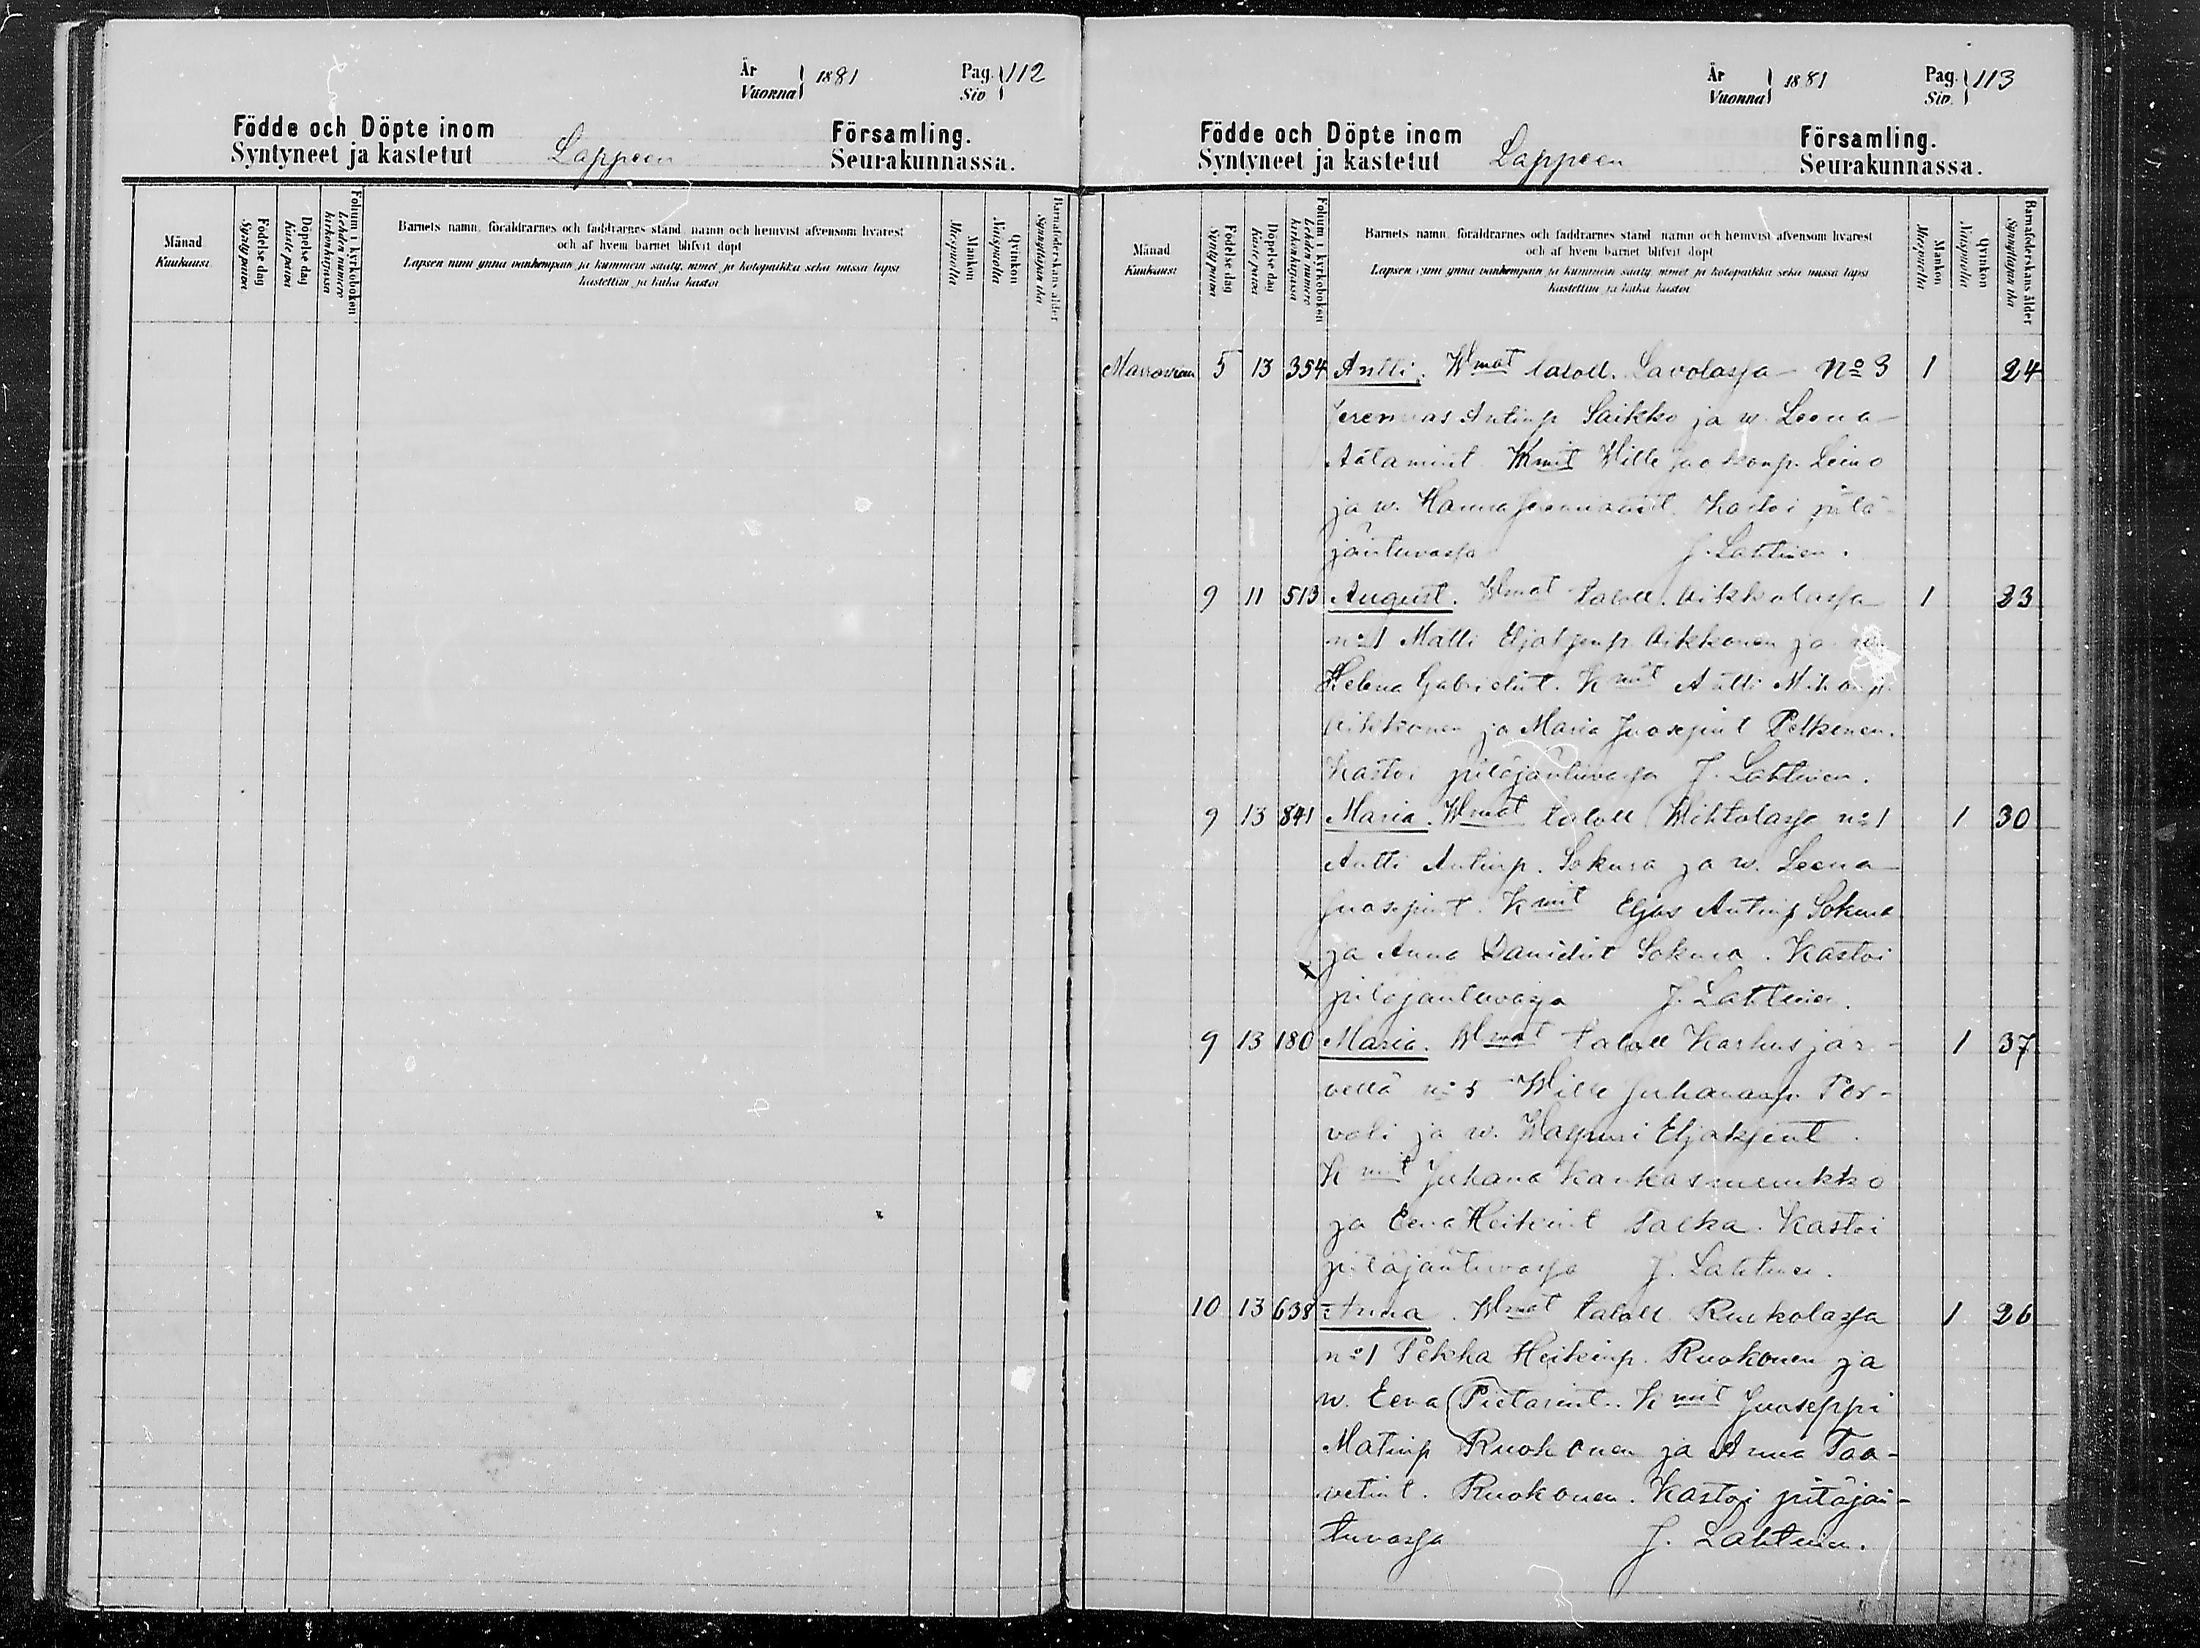 År
Vuonna
1881
Pag.
Siv
112
Födde och Döpte inom
Syntyneet ja kastetut
Lappeen
Församling.
Seurakunnassa.
Månad
Kuukausi
Födelse dag
Synty päivä
Döpelse dag
Kaste päivä
Folium i kyrkoboken
Lehden numero kirkonkirjassa
Barnets namn, föräldrarnes och faddrarnes stånd, namn och hemvist äfvensom hvarest
och af hvem barnet blifvit döpt
Lapsen nimi ynnä vanhempain ja kummein sääty, nimet ja kotopaikka sekä missä lapsi
kastettiin ja kuka kastoi
Mankön
Miespuolta
Qvinkön
Naispuolta
Barnaföderskans ålder
Synnyttäjän ikä
År
Vuonna
1881
Pag.
Siv.
113
Födde och Döpte inom
Syntyneet ja kastetut
Lappeen
Församling.
Seurakunnassa.
Månad
Kuukausi
Födelse dag
Synty päivä
Döpelse dag
Kaste päivä
Folium i kyrkoboken
Lehden numero kirkonkirjassa
Barnets namn, föräldrarnes och faddrarnes stånd, namn och hemvist äfvensom hvarest
och af hvem barnet blifvit döpt
Lapsen nimi ynnä vanhempain ja kummein sääty, nimet ja kotopaikka sekä missä lapsi
kastettiin ja kuka kastoi
Mankön
Miespuolta
Qvinkön
Naispuolta
Barnaföderskans ålder
Synnyttäjän ikä
5 13 354 Antti. Wmat taloll. Lavolassa No 3 1 24
Jeremias Antinp Saikko ja w. Leena
Aatamint. Kmit Wille Juhonp. Leino
ja w. Hanna Kastoi pitä-
jäntuvassa J. Lahtinen.
9 11 513 August. Wmat taloll. Oikkolassa 1 23
no 1 Matti Eljaksenp Oikkonen ja w.
Helena Gabrielint. Kmit Antti Mikonp.
Oikkonen ja Maria Juosepint Pelkonen.
Kastoi pitäjäntuvassa J. Lahtinen.
9 13 841 Maria. Wmat taloll Wihtolassa no 1 1 30
Antti Antinp. Sokura ja w. Leena
Juosepint. Kmit Eljas Antinp Sokura
ja Anna Danielint Sokura. Kastoi
pitäjäntuvassa J. Lahtinen.
9 13 180 Maria. Wmat taloll Karhusjär- 1 37
vellä no 5 Wille Juhananp Ter-
voli ja w. Wappuri Eljaksent.
Kmit Juhana Kankasmuukko
ja Eeva Heikint Talka. Kastoi
pitäjäntuvassa J. Lahtinen.
10 13 638 Anna. Wmat taloll. Ruokolassa 1 26
no 1 Pekka Heikinp. Ruokonen ja
w. Eeva Pietarint. Kmit Juoseppi
Matinp Ruokonen ja Anna Taa-
vetint. Ruokonen. Kastoi pitäjän-
tuvassa J. Lahtinen.